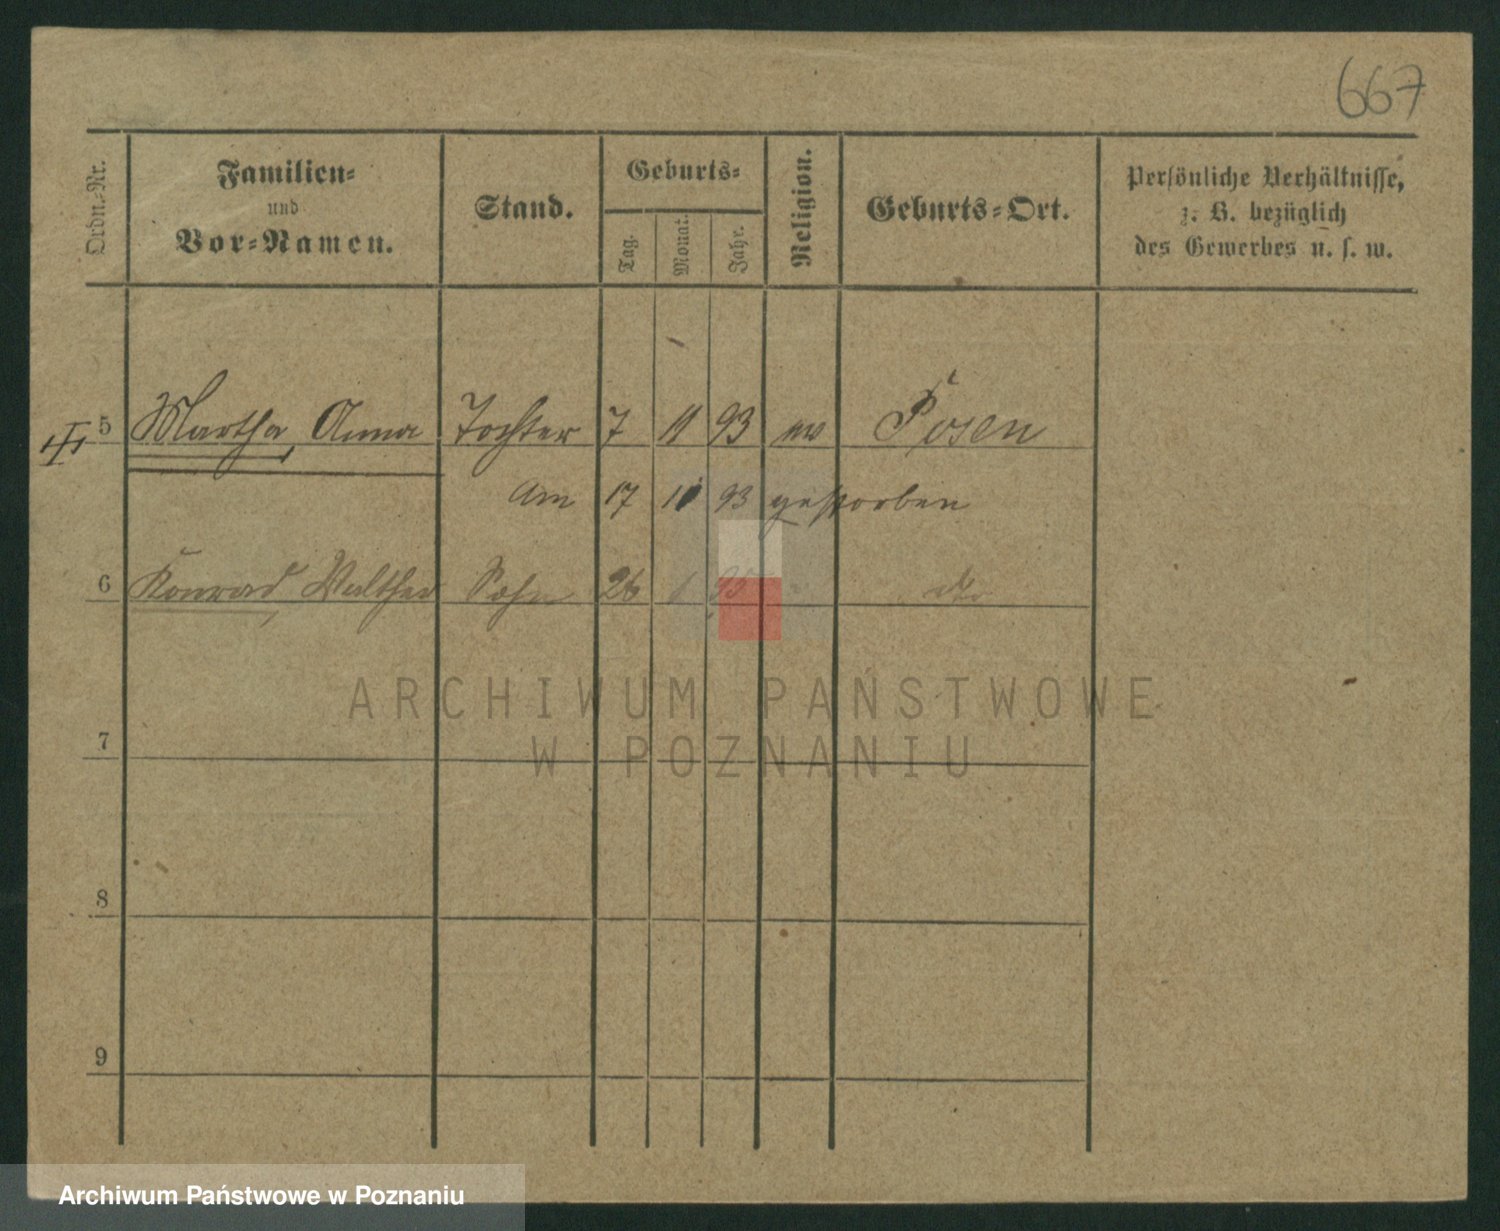 667
Ordn.-Nr.
Familien-
und
Vor-Namen.
Stand.
Geburts-
Tag.
Monat.
Jahr.
Religion.
Geburts-Ort.
Persönliche Verhältnisse,
z. B. bezüglich
des Gewerbes u. s. w.
5 Martha, Anna Tochter 7 11 93 ev Posen
Am 17 11 93 gestorben
6 Konrad, Walther Sohn 26 1 95 do
ARCHIWUM PAŃSTWOWE
W POZNANIU
7
8
9
Archiwum Państwowe w Poznaniu